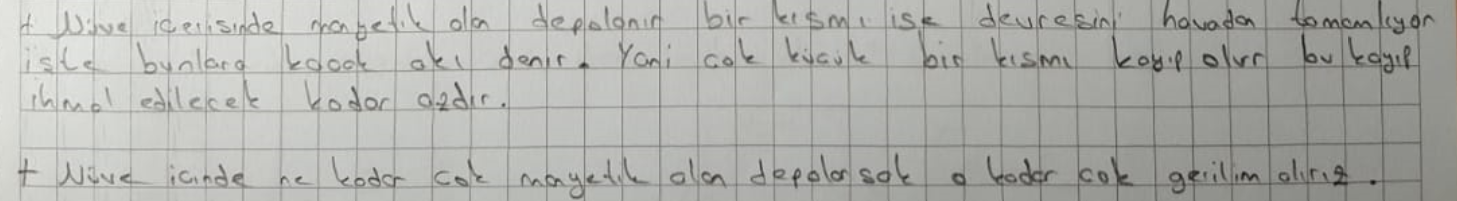 + Nüve içerisinde manyetik alan depolanır bir kısmı ise devresini havadan tamamlıyor
işte bunlara kaçak akı denir. Yani çok küçük bir kısmı kayıp olur bu kayıp
ihmal edilecek kadar azdır.
+ Nüve içinde ne kadar çok manyetik alan depolarsak o kadar çok gerilim alırız.